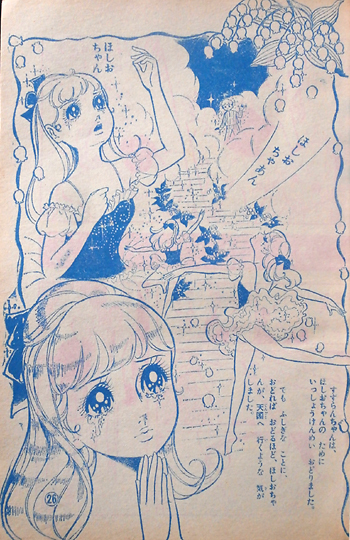 ほしお
ちゃん
ほしお
ちゃあん
すずらんちゃんは、
ほしおちゃんの ために
いっしょうけんめい おどりました。
でも ふしぎな ことに、
おどれば おどるほど、ほしおちゃ
んが、天国へ 行くような 気が
しました。
26